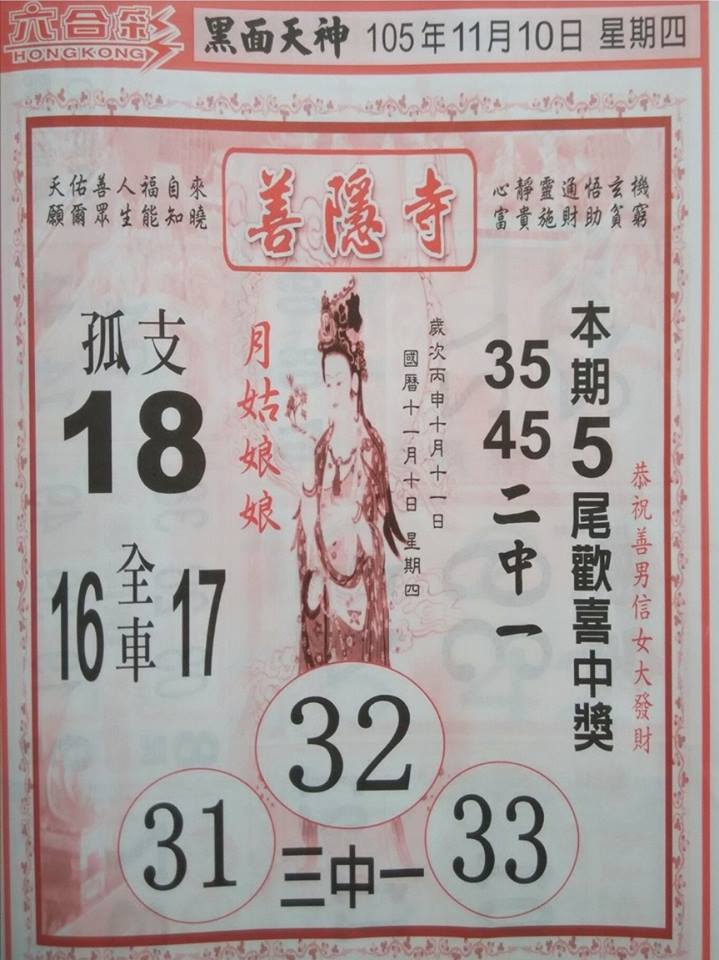 六合彩
HONGKONG
黑面天神 105年11月10日 星期四
善隱寺
天佑善人福自來
願爾眾生能知曉
心靜靈通悟玄機
富貴施財助貧窮
本期5尾歡喜中獎
35
45
二中一
恭祝善男信女大發財
歲次丙申十月十一日
國曆十一月十日 星期四
月姑娘娘
孤支
18
16 全車 17
32
31 三中一 33